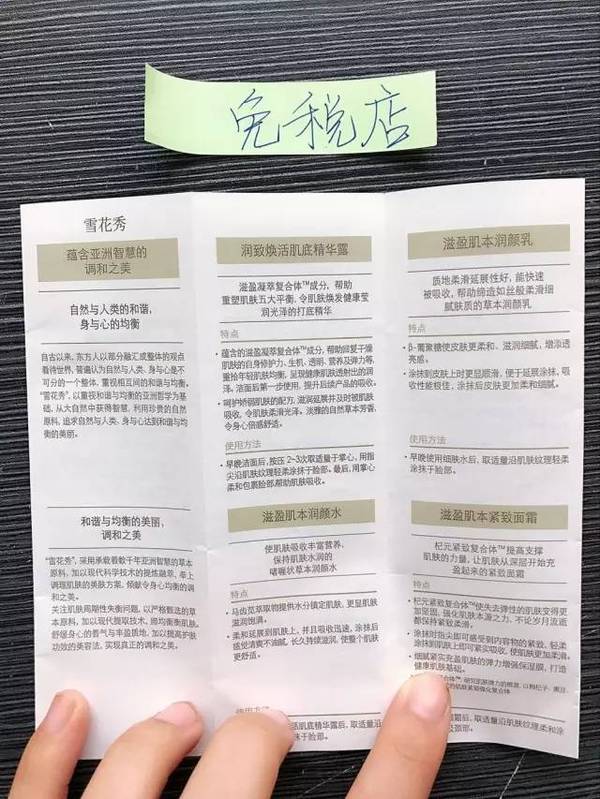 免税店
雪花秀
蕴含亚洲智慧的
调和之美
自然与人类的和谐，
身与心的均衡
自古以来，东方人以部分融汇成整体的观点
看待世界，普遍认为自然与人类、身与心是不
可分的一个整体，重视相互间的和谐与均衡。
“雪花秀”，以重视和谐与均衡的亚洲哲学为基
础，从大自然中获得智慧，利用珍贵的自然
原料，追求自然与人类、身与心达到和谐与均
衡的美丽。
和谐与均衡的美丽，
调和之美
“雪花秀”，采用承载着数千年亚洲智慧的草本
原料，加以现代科学技术的提炼萃取，奉上
调理肌肤的美肤方案，焕献令身心均衡的调
和之美。
关注肌肤周期性失衡问题，以严格甄选的草
本原料，加以现代提取技术，揶均衡衡肌肤。
舒缓身心的香气与丰盈质地，加以提高护肤
功效的美容法，实现真正的调和之美。
润致焕活肌底精华露
滋盈凝萃复合体™成分，帮助
重塑肌肤五大平衡，令肌肤焕发健康莹
润光泽的打底精华
特点
·蕴含的滋盈凝萃复合体™成分，帮助回复干燥
肌肤的自身修护力、生机、透明、营养及弹力等，
重拾年轻肌肤均衡，呈现健康肌肤透射出的润
泽。洁面后第一步使用，提升后续产品的吸收。
·呵护娇弱肌肤的配方，滋润延展并及时被肌肤
吸收，令肌肤柔滑光泽。淡雅的自然草本芳香，
令身心倍感舒适。
使用方法
·早晚洁面后，按压2~3次取适量于掌心，用指
尖沿肌肤纹理轻柔涂抹于脸部。最后，用掌心
柔和包裹脸部，帮助肌肤吸收。
滋盈肌本润颜水
使肌肤吸收丰富营养，
保持肌肤水润的
啫喱状草本润颜水
特点
·马齿苋萃取物提供水分镇定肌肤，更显肌肤
滋润饱满。
·柔和延展到肌肤上，并且吸收迅速，涂抹后
感觉清爽不油腻，长久持续滋润，使整个肌肤
更舒适。
使用方法
肌底精华露后，取适量沿
涂抹于脸部。
滋盈肌本润颜乳
质地柔滑延展性好，能快速
被吸收，帮助缔造如丝般柔滑细
腻肤质的草本润颜乳
特点
·β-葡聚糖使皮肤更柔和、滋润细腻，增添透
亮感。
·涂抹到皮肤上时更显顺滑，便于延展涂抹，吸
收性能极佳，涂抹后皮肤更加柔和细腻。
使用方法
·早晚使用细肤水后，取适量沿肌肤纹理轻柔
涂抹于脸部。
滋盈肌本紧致面霜
杞元紧致复合体™提高支撑
肌肤的力量，让肌肤从深层开始充
盈起来的紧致面霜
特点
·杞元紧致复合体™使失去弹性的肌肤变得更
加坚固，强化肌肤本源之力，不论岁月流逝
都保持紧致柔滑。
·涂抹时指尖即可感受到内容物的紧致，轻柔
涂抹到肌肤上即可紧实吸收，使肌肤更加柔滑。
·细腻紧实充盈肌肤的弹力增强保湿膜，打造
健康肌肤基础。
颜霜后，取适量沿肌肤纹理柔和涂
及颈部。